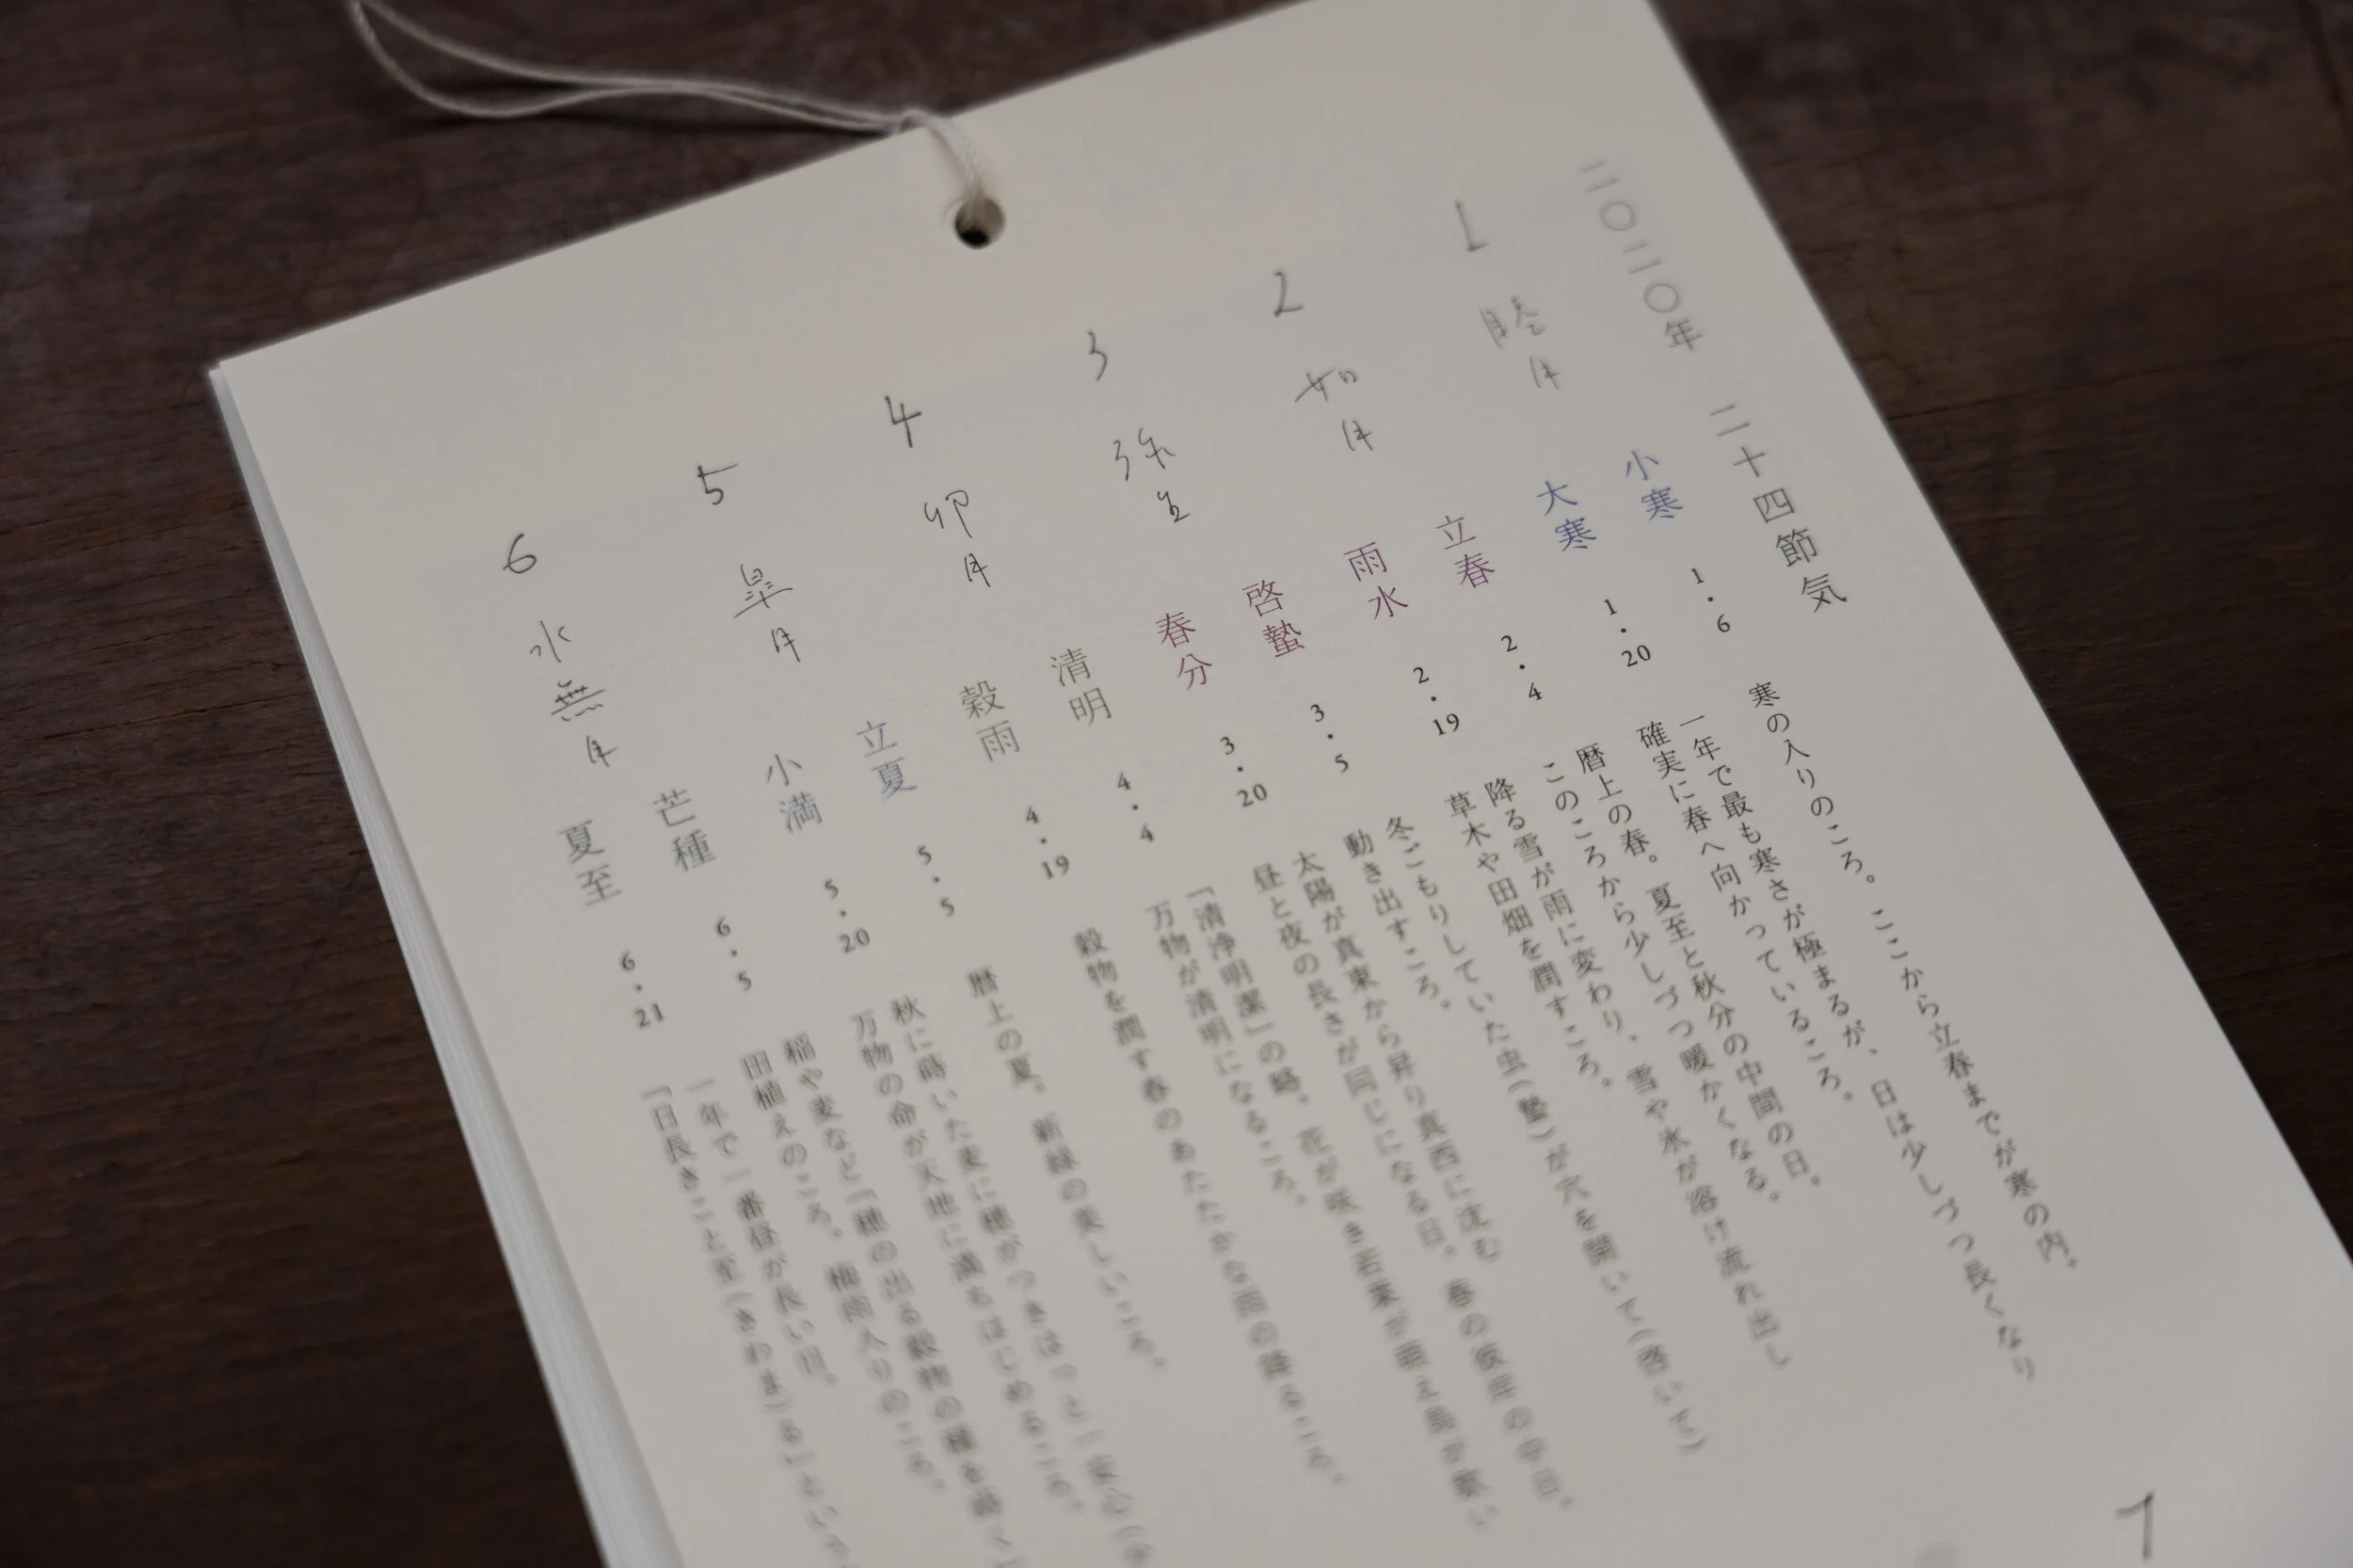 二〇二〇年 二十四節気
1 睦月
小寒 1・6 寒の入りのころ。ここから立春までが寒の内。
大寒 1・20 一年で最も寒さが極まるが、日は少しづつ長くなり
確実に春へ向かっているころ。
2 如月
立春 2・4 暦上の春。夏至と秋分の中間の日。
このころから少しづつ暖かくなる。
雨水 2・19 降る雪が雨に変わり、雪や氷が溶け流れ出し
草木や田畑を潤すころ。
3 弥生
啓蟄 3・5 冬ごもりしていた虫(蟄)が穴を開いて(啓いて)
動き出すころ。
春分 3・20 太陽が真東から昇り真西に沈む
昼と夜の長さが同じになる日。春の彼岸の中日。
4 卯月
清明 4・4 「清浄明潔」の略。花が咲き若葉が萌え鳥が歌い
万物が清明になるころ。
穀雨 4・19 穀物を潤す春のあたたかな雨の降るころ。
5 皐月
立夏 5・5 暦上の夏。新緑の美しいころ。
小満 5・20 秋に蒔いた麦に穂がつきほっと一安心(少
万物の命が天地に満ちはじめるころ。
6 水無月
芒種 6・5 稲や麦など「穂の出る穀物の種を蒔く」
田植えのころ。梅雨入りのころ。
夏至 6・21 一年で一番昼が長い日。
「日長きこと至(きわま)る」という
7